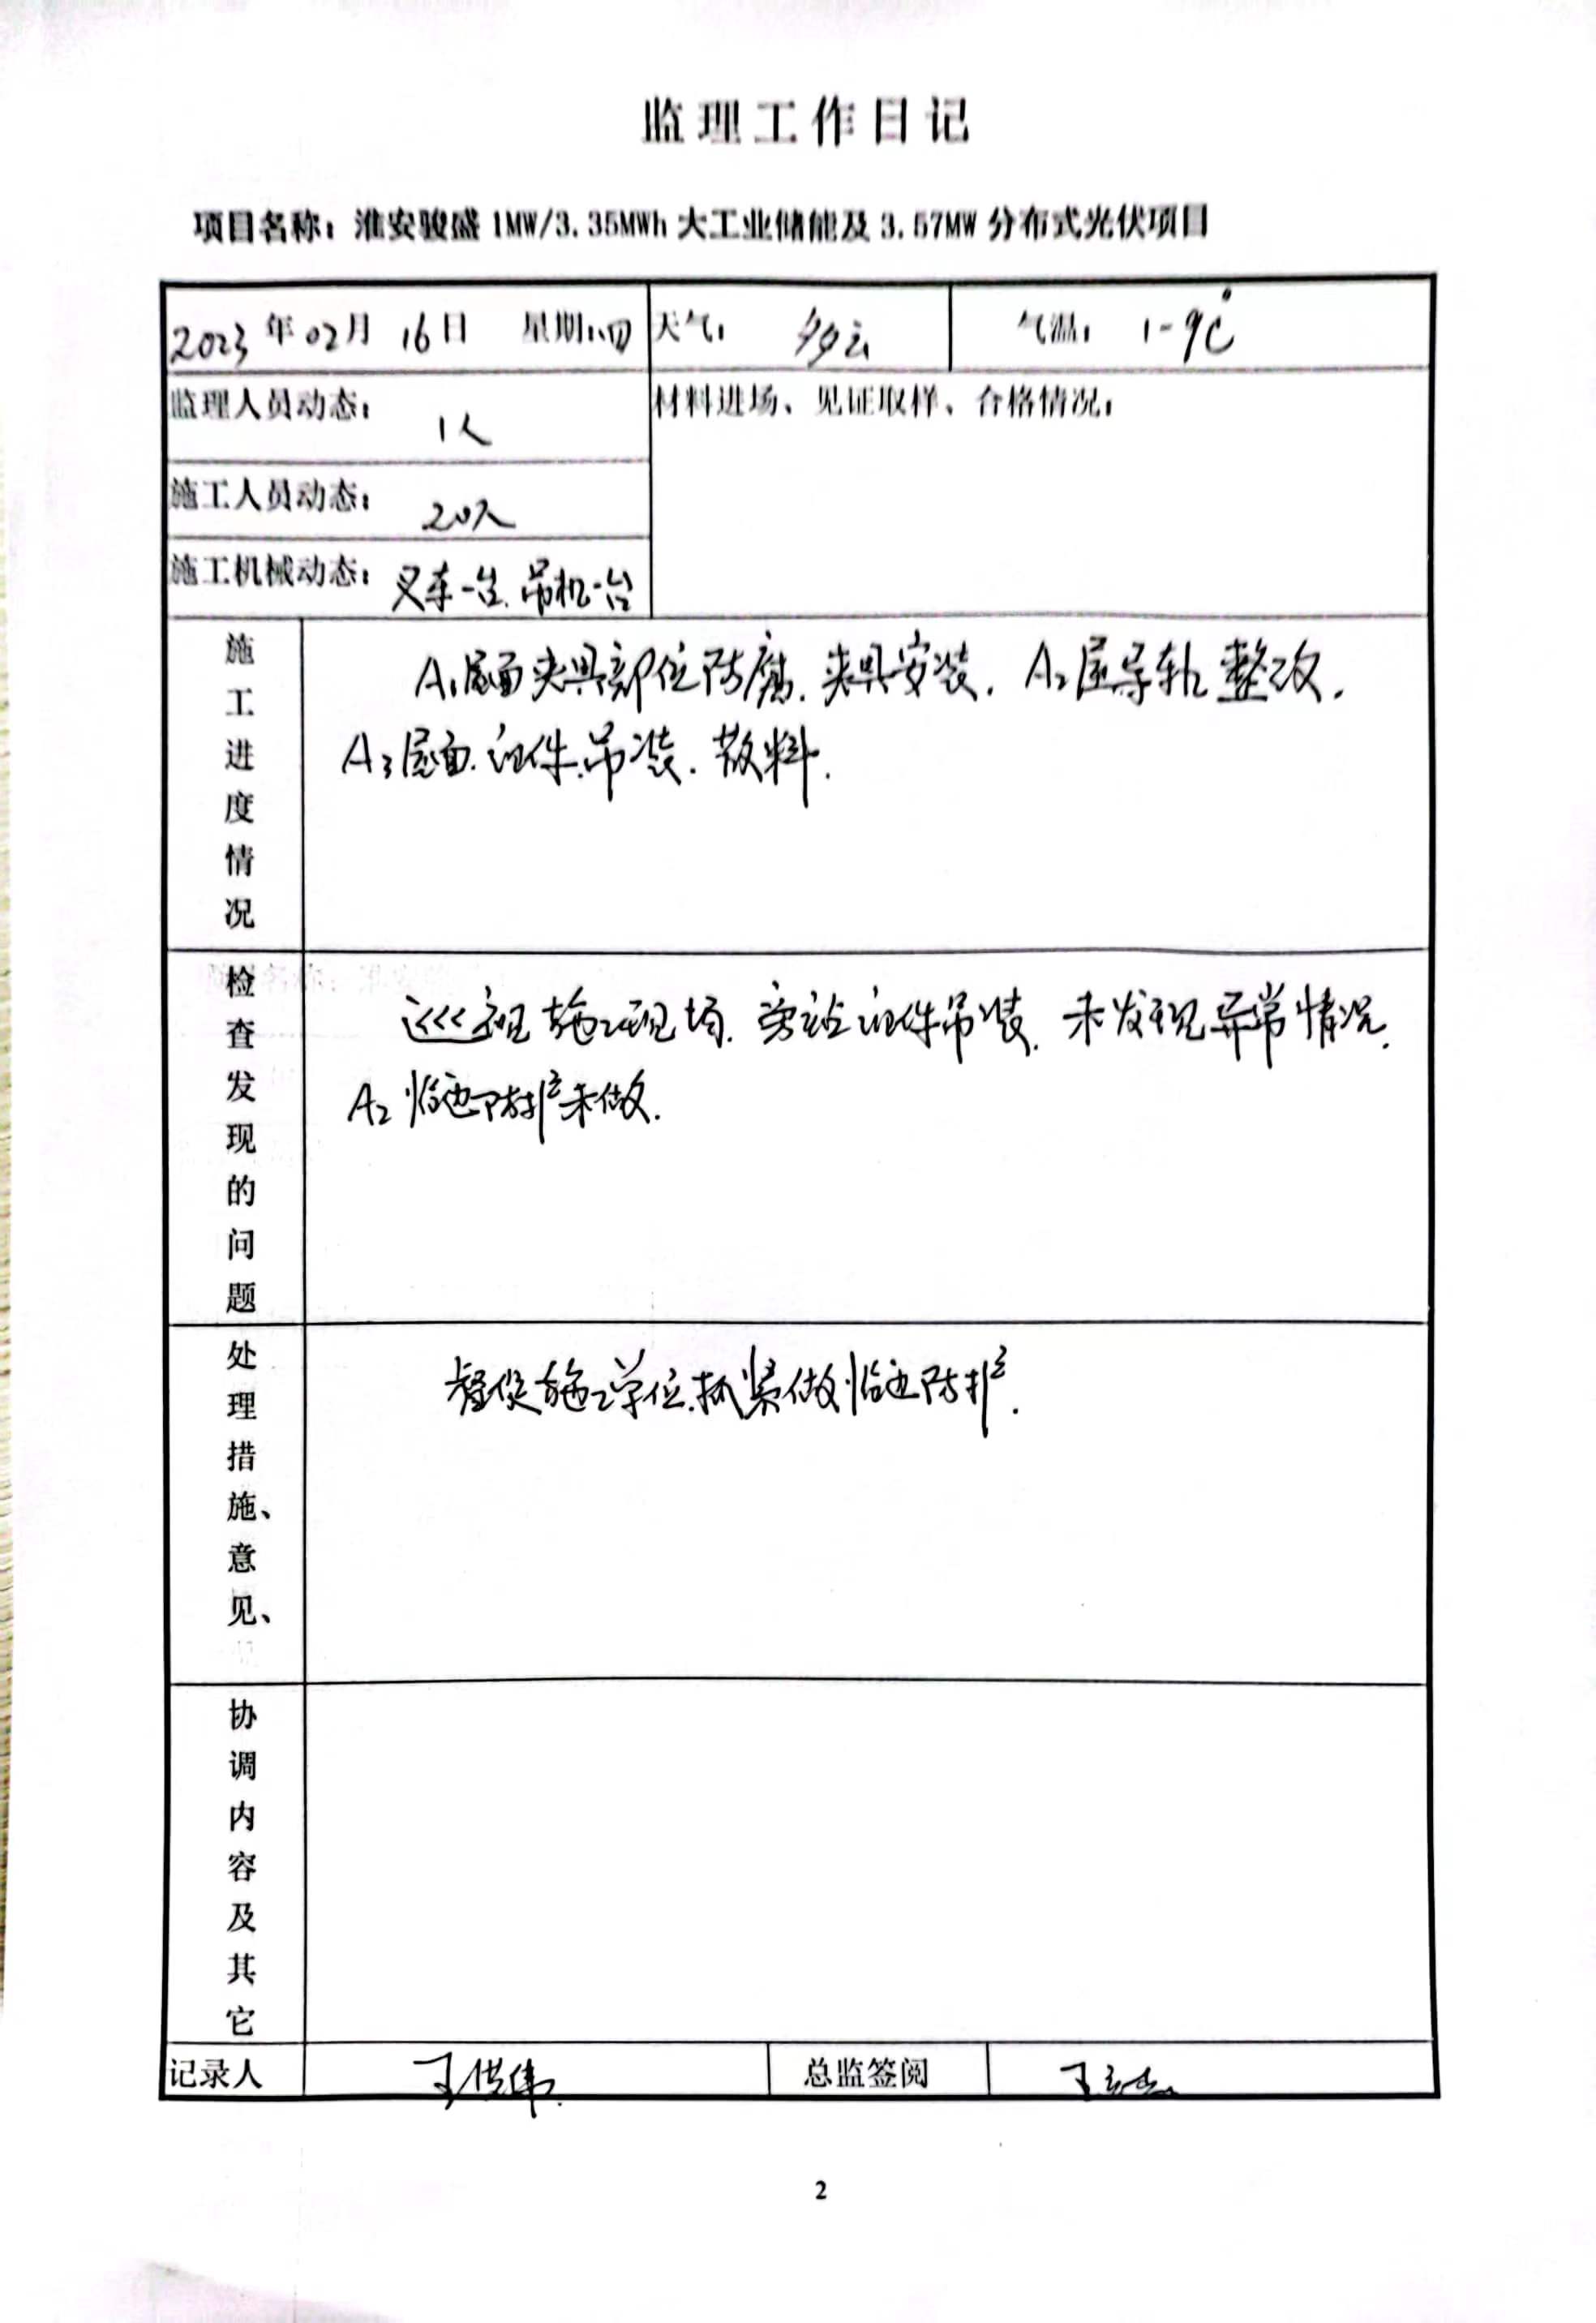 监理工作日记
项目名称：淮安骏盛1MW/3.35MWh大工业储能及3.57MW分布式光伏项目
2023年02月16日 星期：四 天气： 多云 气温： 1-9℃
监理人员动态： 1人
材料进场、见证取样、合格情况：
施工人员动态： 20人
施工机械动态： 叉车一台、吊机一台
施工进度情况
A1屋面夹具部位防腐、夹具安装、A2屋导轨整改、
A3屋面、组件吊装、散料.
检查发现的问题
巡视施工现场、旁站组件吊装、未发现异常情况、
A2临边防护未做.
处理措施、意见、
督促施工单位抓紧做临边防护.
协调内容及其它
记录人 总监签阅
2